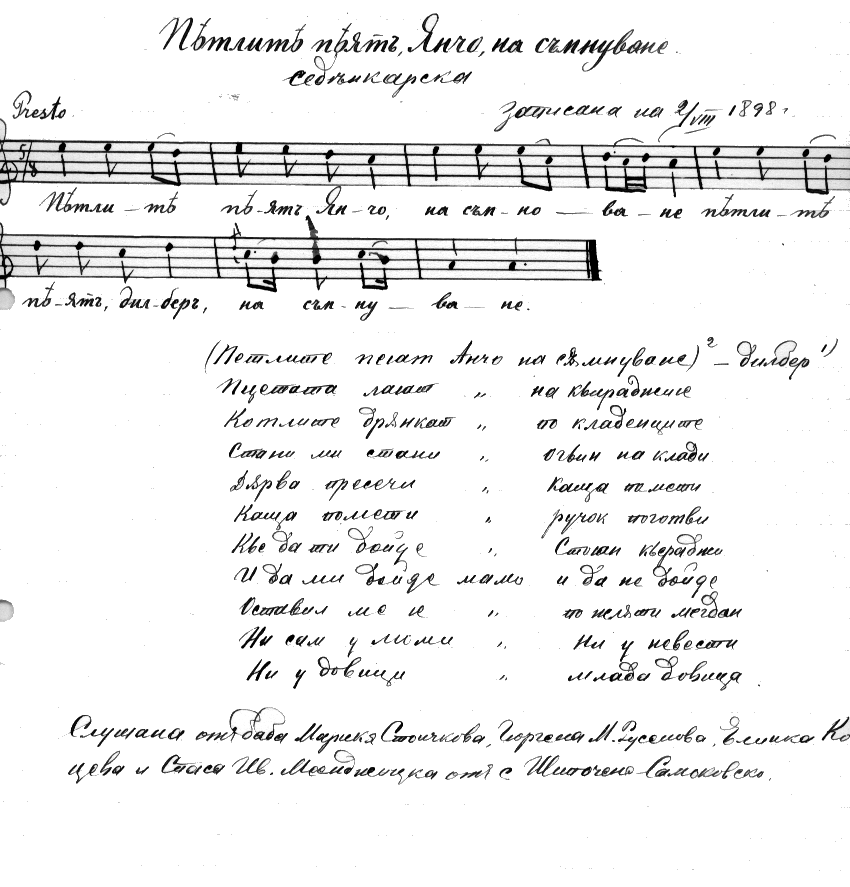 Пѣтлитѣ пѣятъ, Янчо, на съмнуване.
седѣнкарска
Presto
записана на 2/VIII 1898 г.
5/8
Пѣтли – тѣ пѣ-ятъ Ян-чо, на съм-но – ва – не пѣтли – тѣ
пѣ-ятъ, дил-беръ, на съм-ну – ва – не.
(Петлите пеят Анчо на съмнуване)² – дилбер ¹)
Пцетата лаят „ на кьираджие
Котлите дрънкат „ по кладенците
Стани ми стани „ огвин на клади
Дърва пресечи „ Каща помети
Каща помети „ ручок поготви
Кье да ти дойде „ Стоян кьераджи
И да ми дойде мамо и да не дойде
Оставил ме е „ по мегдан
Ни сам у моми „ Ни у невести
Ни у довици „ млада довица.
Слушана отъ баба Марикя Стоичкова, Гюргена М. Русенова, Елинка Ко
цева и Спаса Ив. отъ с. Шипочено – Самоковско.